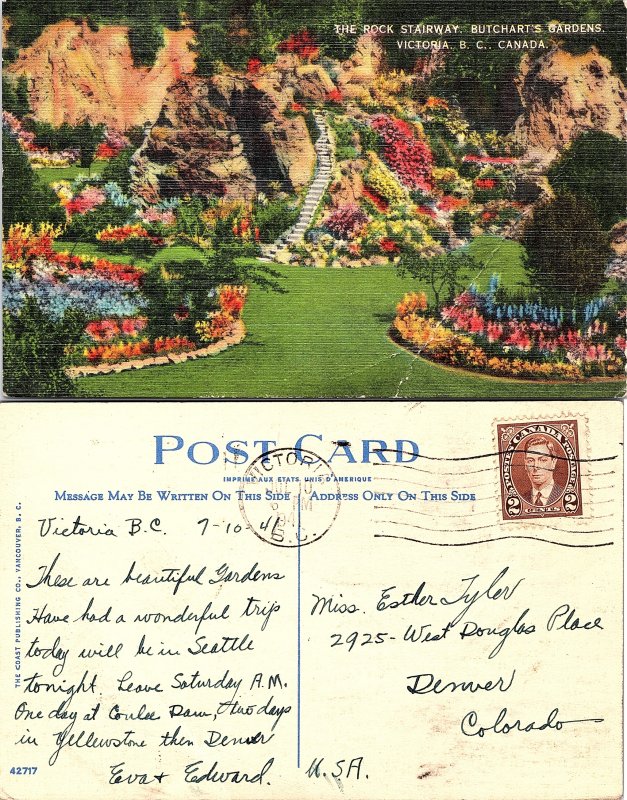 THE ROCK STAIRWAY, BUTCHART'S GARDENS,
VICTORIA, B. C., CANADA.
POST CARD
IMPRIMÉ AUX ETATS UNIS D'AMERIQUE
MESSAGE MAY BE WRITTEN ON THIS SIDE
ADDRESS ONLY ON THIS SIDE
VICTORIA
PM
B.C.
POSTES CANADA POSTAGE
2 CENTS 2
THE COAST PUBLISHING CO., VANCOUVER, B. C.
42717
Victoria B.C. 7-10-41
These are beautiful Gardens
Have had a wonderful trip
today will be in Seattle
tonight. Leave Saturday A.M.
One day at Coulee Dam, & two days
in Yellowstone then Denver
Eva & Edward.
Miss. Esther Tyler
2925- West Douglas Place
Denver
Colorado
U.S.A.